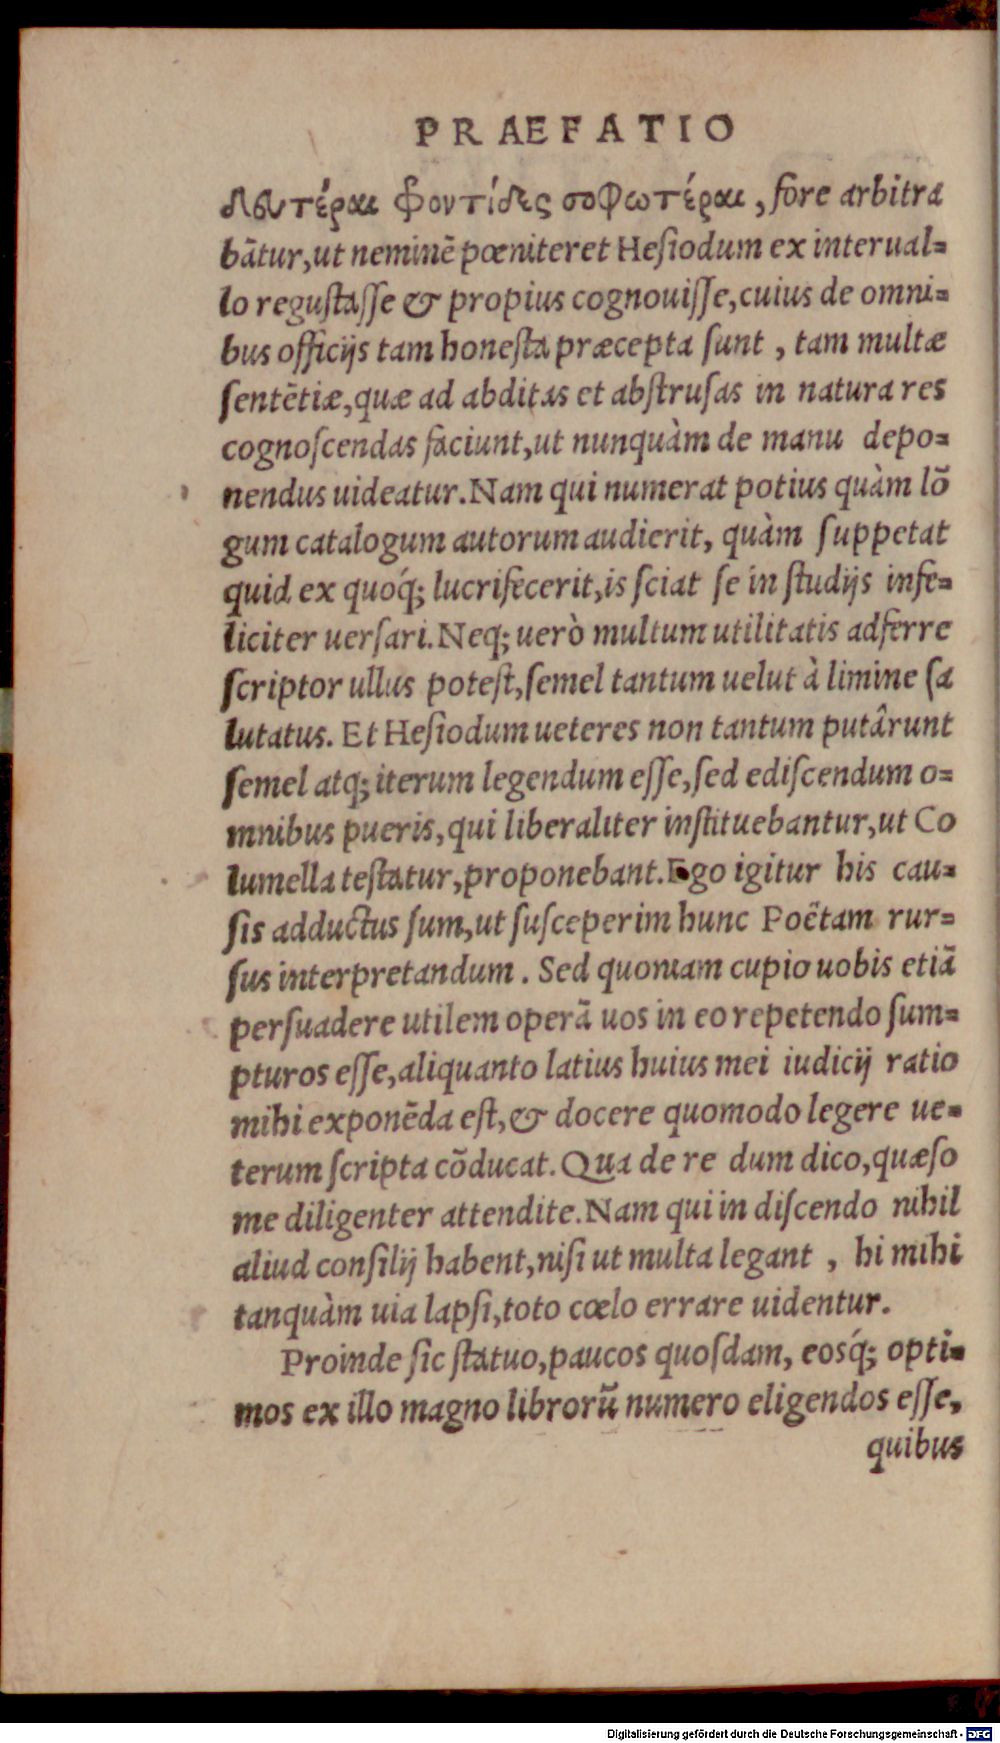 PRAEFATIO
δευτέραι φροντίδες σοφωτέραι, fore arbitra
bãtur, ut neminẽ pœniteret Hesiodum ex interual-
lo regustasse & propius cognouisse, cuius de omni-
bus officijs tam honesta præcepta sunt, tam multæ
sentẽtiæ, quæ ad abditas et abstrusas in natura res
cognoscendas faciunt, ut nunquàm de manu depo-
nendus uideatur. Nam qui numerat potius quàm lõ
gum catalogum autorum audierit, quàm suppetat
quid ex quoq́; lucrifecerit, is sciat se in studijs infe-
liciter uersari. Neq; uerò multum utilitatis adferre
scriptor ullus potest, semel tantum uelut à limine sa
lutatus. Et Hesiodum ueteres non tantum putârunt
semel atq; iterum legendum esse, sed ediscendum o-
mnibus pueris, qui liberaliter instituebantur, ut Co
lumella testatur, proponebant. Ego igitur his cau-
sis adductus sum, ut susceperim hunc Poëtam rur-
sus interpretandum. Sed quoniam cupio uobis etiã
persuadere utilem operã uos in eo repetendo sum-
pturos esse, aliquanto latius huius mei iudicij ratio
mihi exponẽda est, & docere quomodo legere ue-
terum scripta cõducat. Qua de re dum dico, quæso
me diligenter attendite. Nam qui in discendo nihil
aliud consilij habent, nisi ut multa legant, hi mihi
tanquàm uia lapsi, toto cœlo errare uidentur.
Proinde sic statuo, paucos quosdam, eosq́; opti-
mos ex illo magno librorũ numero eligendos esse,
quibus
Digitalisierung gefördert durch die Deutsche Forschungsgemeinschaft - DFG